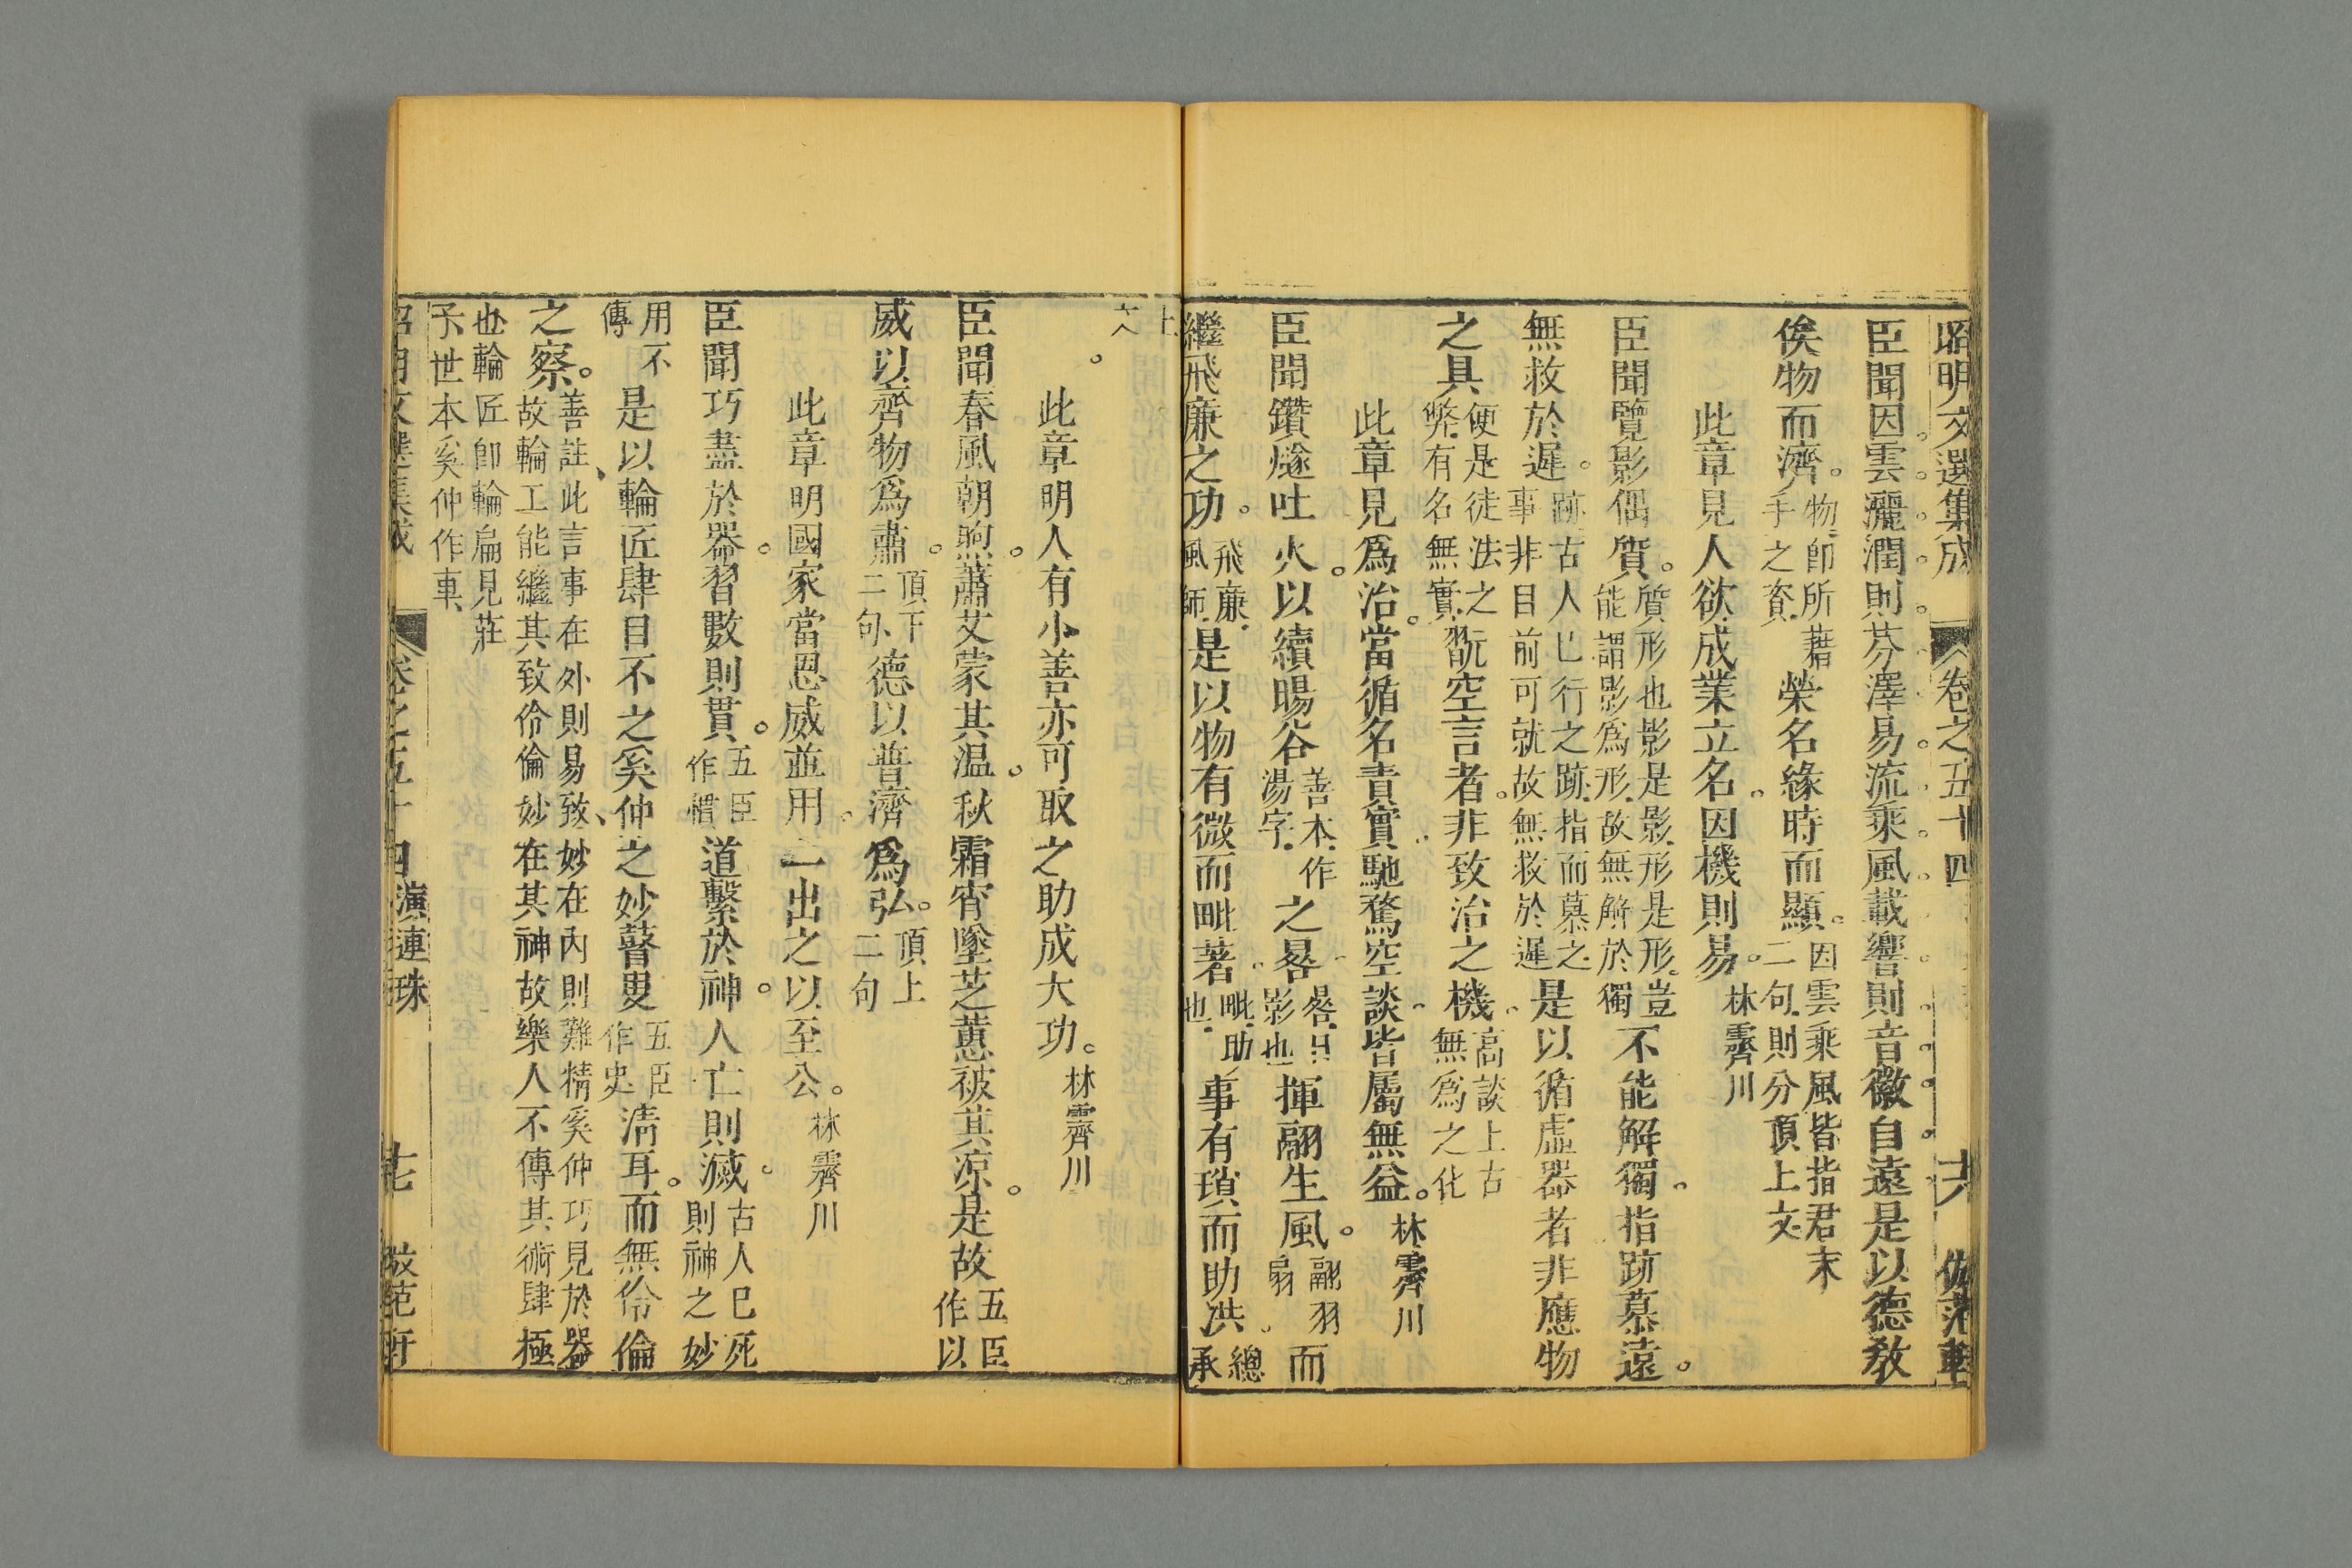 昭明文選集成 卷之五十四 六 倣范軒
臣聞因雲灑潤則芬澤易流乘風載響則音徽自遠是以德教
俟物而濟物卽所藉手之資榮名緣時而顯因雲乘風皆指君末二句則分頂上文
此章見人欲成業立名因機則易林霽川
臣聞覽影偶質質形也影是影形是形豈能謂影爲形故無解於獨不能解獨指跡慕遠
無救於遲跡古人已行之跡指而慕之事非目前可就故無救於遲是以循虛器者非應物
之具便是徒法之弊有名無實翫空言者非致治之機高談上古無爲之化
此章見爲治當循名責實馳騖空談皆屬無益林霽川
臣聞鑽燧吐火以續暘谷善本作湯字之晷晷日影也揮翮生風翮羽扇而
繼飛廉之功飛廉風師是以物有微而毗著毗助也事有瑣而助洪總承
上文
此章明人有小善亦可取之助成大功林霽川
臣聞春風朝煦蕭艾蒙其温秋霜宵墜芝蕙被其凉是故五臣作以
威以齊物爲肅頂下二句德以普濟爲弘頂上二句
此章明國家當恩威並用一出之以至公林霽川
臣聞巧盡於器習數則貫五臣作慣道繫於神人亡則滅古人已死則神之妙
用不傳是以輪匠肆目不之奚仲之妙瞽叟五臣作史淸耳而無伶倫
之察善註此言事在外則易致妙在內則難精奚仲巧見於器故輪工能繼其致伶倫妙在其神故樂人不傳其術肆極
也輪匠卽輪扁見莊子世本奚仲作車
昭明文選集成 卷之五十四 演連珠 七 倣范軒